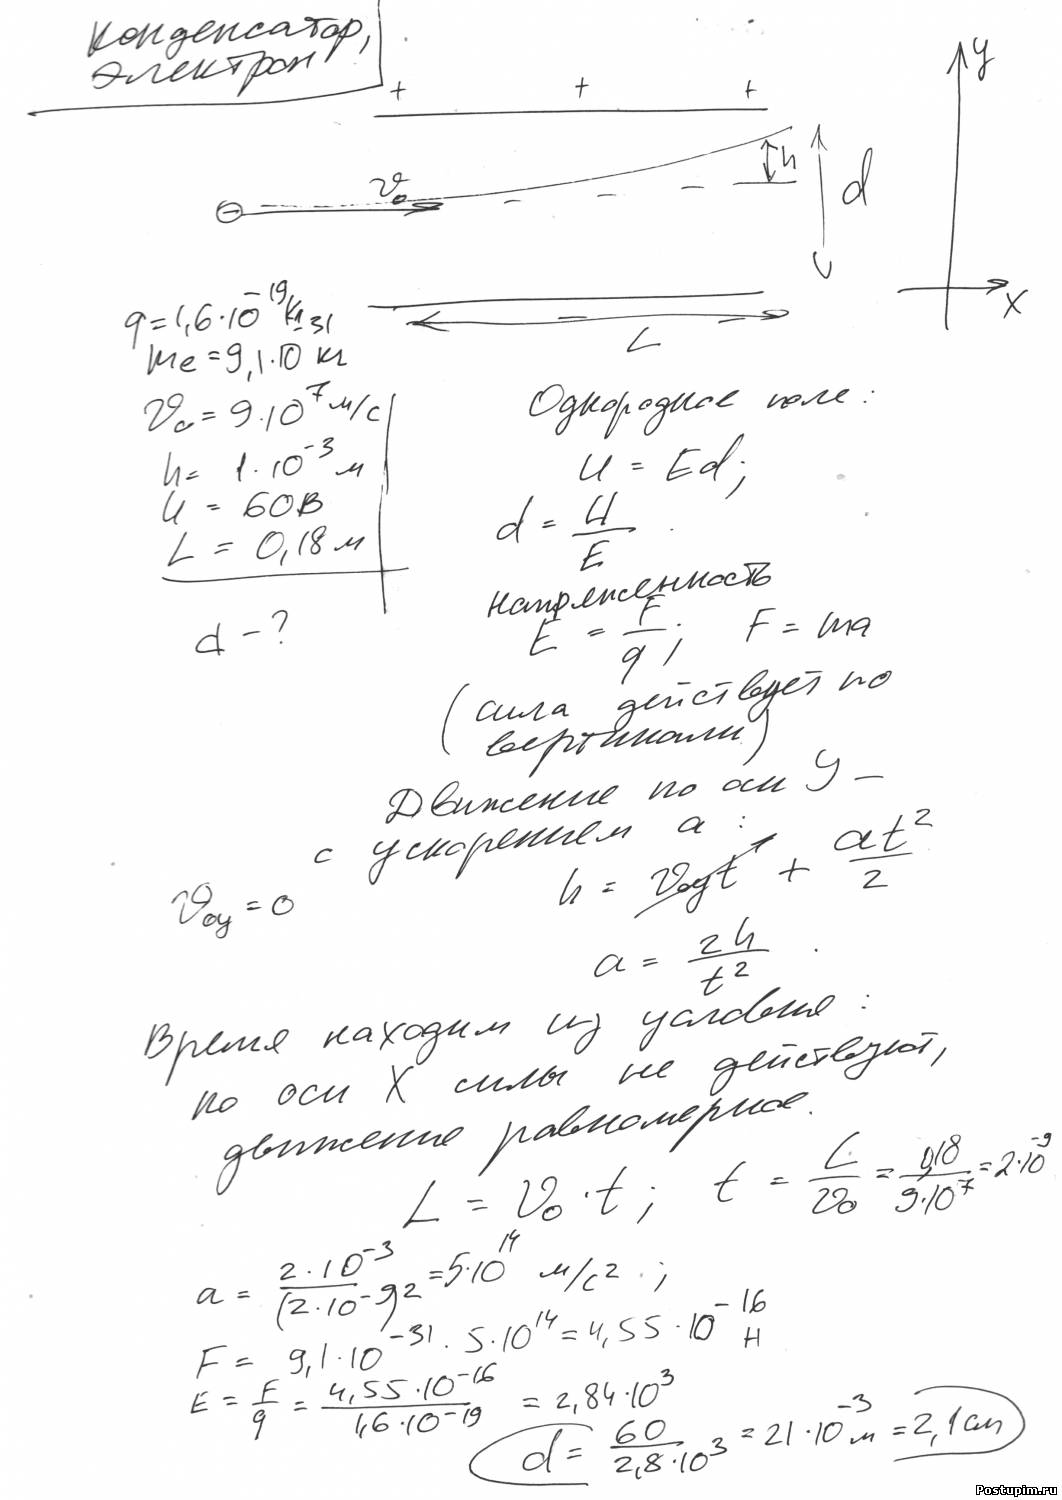 Конденсатор,
электрон
+ + +
y
h
d
v₀
⊖
x
L
q = 1,6·10⁻¹⁹ Кл
me = 9,1·10⁻³¹ кг
v₀ = 9·10⁷ м/с
h = 1·10⁻³ м
U = 60В
L = 0,18 м
d - ?
Однородное поле:
U = Ed;
d = U/E
напряженность
E = F/q; F = ma
(сила действует по
вертикали)
Движение по оси y –
с ускорением a:
v₀y = 0
h = v₀yt + at²/2
a = 2h/t²
Время находим из условия:
по оси X силы не действуют,
движение равномерное.
L = v₀·t; t = L/v₀ = 0,18/9·10⁷ = 2·10⁻⁹
a = 2·10⁻³/(2·10⁻⁹)² = 5·10¹⁴ м/с²;
F = 9,1·10⁻³¹·5·10¹⁴ = 4,55·10⁻¹⁶ Н
E = F/q = 4,55·10⁻¹⁶/1,6·10⁻¹⁹ = 2,84·10³
d = 60/2,8·10³ = 21·10⁻³ м = 2,1 см
Postupim.ru